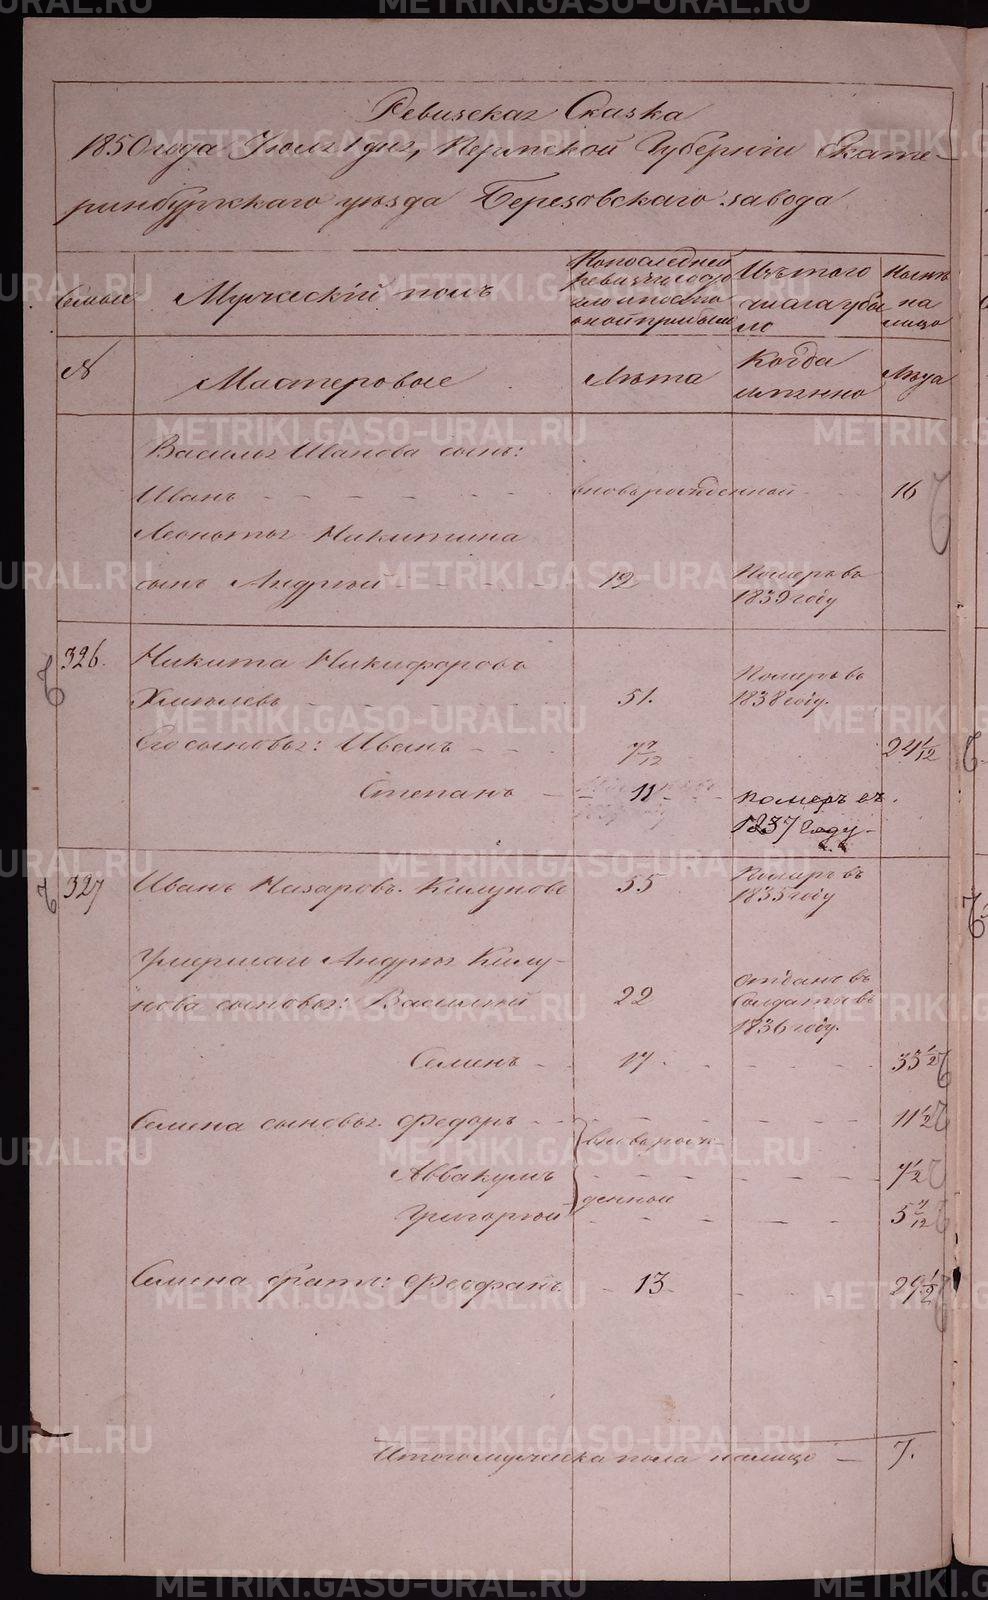 Ревизская Сказка
1850 года Июля 1 дня, Пермской Губернiи Екате-
ринбургскаго уѣзда Березовскаго завода
Семьи
Мужескiй полъ
По последней
ревизiи
Изъ того
числа убы
ло
Нынѣ
на
лицо
№
Мастеровые
Лѣта
Когда
именно
Лѣта
Василья Иванова сынъ:
Иванъ вновь рожденной 16
Леонтья Никитина
сынъ Андрей 12 Померъ въ
1839 году
326. Никита Никифоровъ
51. Померъ въ
1838 году.
Его сыновья: Иванъ 7 7/12 24 1/12
Степанъ 11 померъ въ
1837 году
327 Иванъ Назаровъ 55 Померъ въ
1835 году
Умершаго Андрея
нова сыновья: Василий 22 отданъ въ
Солдаты въ
1836 году.
Семенъ 17 33 1/2
Семена сыновья Федоръ 11 1/2
вновь рож
Аввакумъ 7 1/2
денной
Григорей 5 7/12
Семена братъ: Феофанъ 13 29 1/2
Итого мужеска пола налицо 7.
METRIKI.GASO-URAL.RU